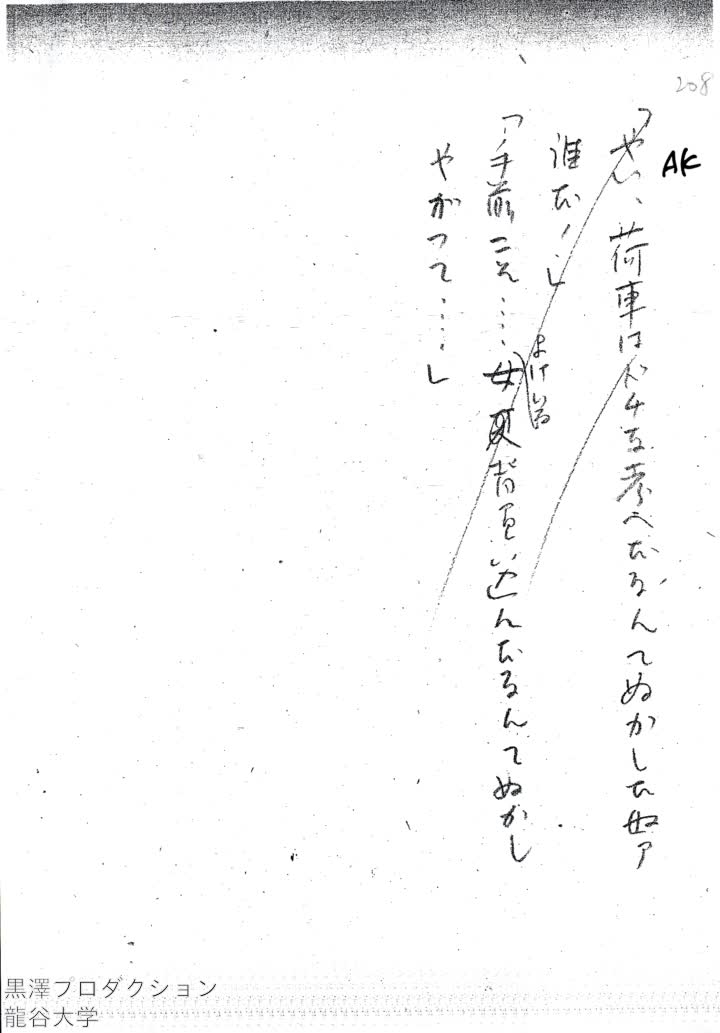 208
AK
「やい、荷車はドチを考へたなんてぬかした奴ア
誰だ!」
「手前こそ‥‥女更背負い込んだなんてぬかし
よけいな
やがつて‥‥」
黒澤プロダクション
龍谷大学